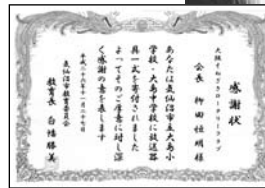 感謝状
大阪そねざきロータリークラブ
会長 柳田恒明様
あなたは気仙沼市立大島小
学校・大島中学校に放送器
具一式を寄付されました
よってそのご厚意に対し深
く感謝の意を表します
平成二十六年十一月二十七日
気仙沼市教育委員会
教育長 白幡勝美